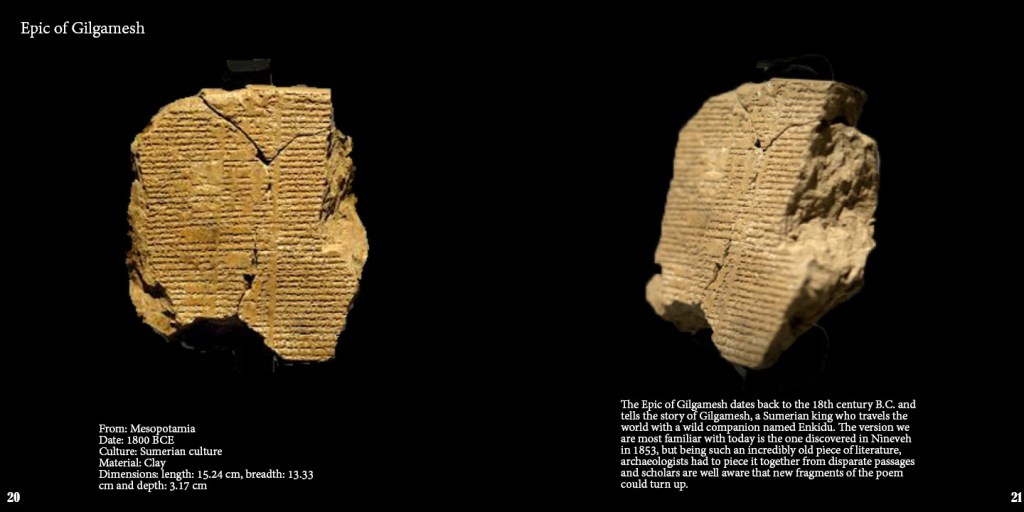 Epic of Gilgamesh
From: Mesopotamia
Date: 1800 BCE
Culture: Sumerian culture
Material: Clay
Dimensions: length: 15.24 cm, breadth: 13.33
cm and depth: 3.17 cm
20
The Epic of Gilgamesh dates back to the 18th century B.C. and
tells the story of Gilgamesh, a Sumerian king who travels the
world with a wild companion named Enkidu. The version we
are most familiar with today is the one discovered in Nineveh
in 1853, but being such an incredibly old piece of literature,
archaeologists had to piece it together from disparate passages
and scholars are well aware that new fragments of the poem
could turn up.
21